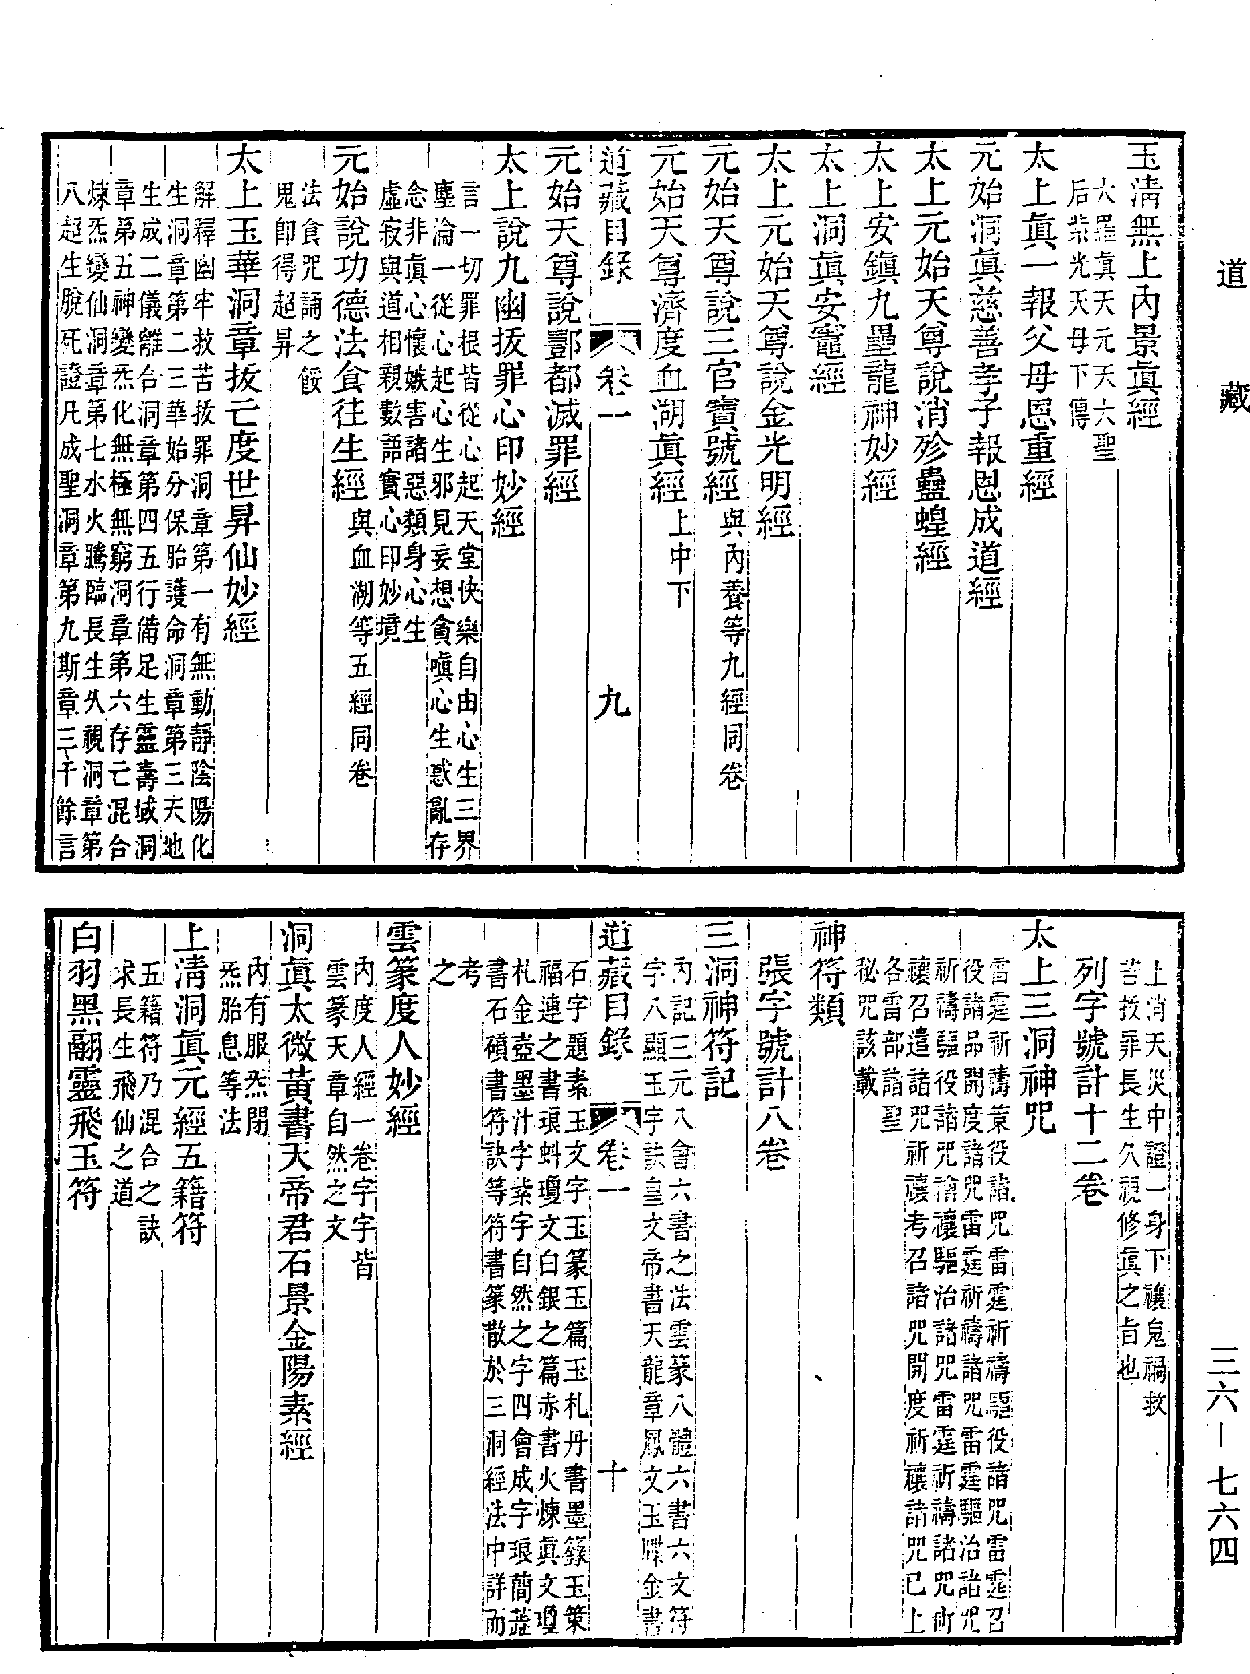 道藏
三六—七六四
玉清無上內景眞經
大羅眞天元天六聖
后紫光天母下傳
太上眞一報父母恩重經
元始洞眞慈善孝子報恩成道經
太上元始天尊說消殄蟲蝗經
太上安鎮九壘龍神妙經
太上洞眞安竈經
太上元始天尊說金光明經
元始天尊說三官寶號經與內養等九經同卷
元始天尊濟度血湖眞經上中下
道藏目錄 卷一 九
元始天尊說酆都滅罪經
太上說九幽拔罪心印妙經
言一切罪根皆從心起天堂快樂自由心生三界
塵淪一從心起心生邪見妄想貪嗔心生惑亂存
念非眞心懷嫉害諸惡類身心生
虛寂與道相親數語實心印妙境
元始說功德法食往生經與血湖等五經同卷
法食咒誦之餒
鬼卽得超昇
太上玉華洞章拔亡度世昇仙妙經
解釋幽牢救苦拔罪洞章第一有無動靜陰陽化
生洞章第二三華始分保胎護命洞章第三天地
生成二儀離合洞章第四五行備足生靈壽域洞
章第五神變炁化無極無窮洞章第六存亡混合
煉炁變仙洞章第七水火騰臨長生久視洞章第
八超生脫死證凡成聖洞章第九斯章三千餘言
上消天災中證一身下禳鬼禍救
苦拔罪長生久視修眞之旨也
列字號計十二卷
太上三洞神咒
雷霆祈禱策役諸咒雷霆祈禱驅役諸咒雷霆召
役諸品開度諸咒雷霆祈禱諸咒雷霆驅治諸咒
祈禱驅役諸咒禬禳驅治諸咒雷霆祈禱諸咒祈
禳召遣諸咒祈禳考召諸咒開度祈禳諸咒已上
各雷部諸聖
秘咒該載
神符類
張字號計八卷
三洞神符記
內記三元八會六書之法雲篆八體六書六文符
字八顯玉字訣皇文帝書天龍章鳳文玉牒金書
道藏目錄 卷一 十
石字題素玉文字玉篆玉篇玉札丹書墨籙玉策
福連之書琅虯瓊文白銀之篇赤書火煉眞文瓊
札金壺墨汁字紫字自然之字四會成字琅簡蕊
書石磧書符訣等符書篆散於三洞經法中詳而
考
之
雲篆度人妙經
內度人經一卷字字皆
雲篆天章自然之文
洞眞太微黃書天帝君石景金陽素經
內有服炁閉
炁胎息等法
上清洞眞元經五籍符
五籍符乃混合之訣
求長生飛仙之道
白羽黑翮靈飛玉符